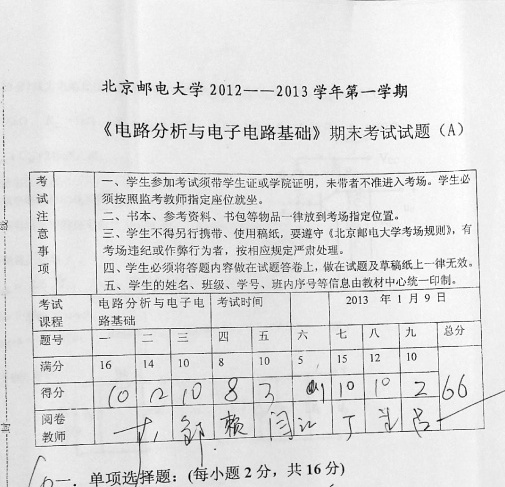 北京邮电大学2012——2013学年第一学期
《电路分析与电子电路基础》期末考试试题（A）
考试注意事项
一、学生参加考试须带学生证或学院证明，未带者不准进入考场。学生必
须按照监考教师指定座位就坐。
二、书本、参考资料、书包等物品一律放到考场指定位置。
三、学生不得另行携带、使用稿纸，要遵守《北京邮电大学考场规则》，有
考场违纪或作弊行为者，按相应规定严肃处理。
四、学生必须将答题内容做在试题答卷上，做在试题及草稿纸上一律无效。
五、学生的姓名、班级、学号、班内序号等信息由教材中心统一印制。
考试课程 电路分析与电子电路基础 考试时间 2013 年 1 月 9 日
题号 一 二 三 四 五 六 七 八 九 总分
满分 16 14 10 8 10 5 15 12 10
得分 10 12 10 8 3 10 10 2 66
阅卷教师
10
一．单项选择题：(每小题 2 分，共 16 分)